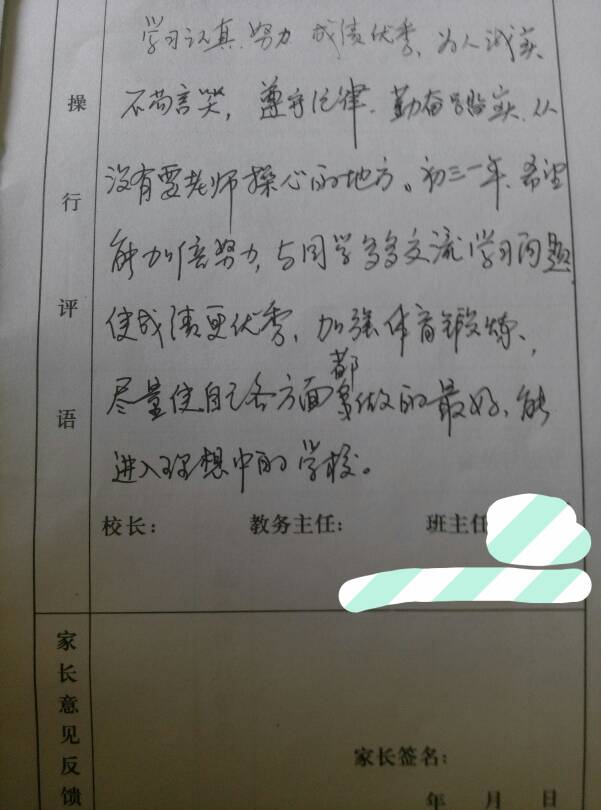 学习认真、努力、成绩优秀、为人诚实、
不苟言笑，尊守纪律、勤奋踏实、从
没有要老师操心的地方。初三一年、希望
能加倍努力，与同学多多交流学习问题，
使成绩更优秀，加强体育锻炼、，
都
尽量使自己各方面做的最好、能
进入理想中的学校。
操行评语
校长： 教务主任： 班主任
家长意见反馈
家长签名：
年 月 日